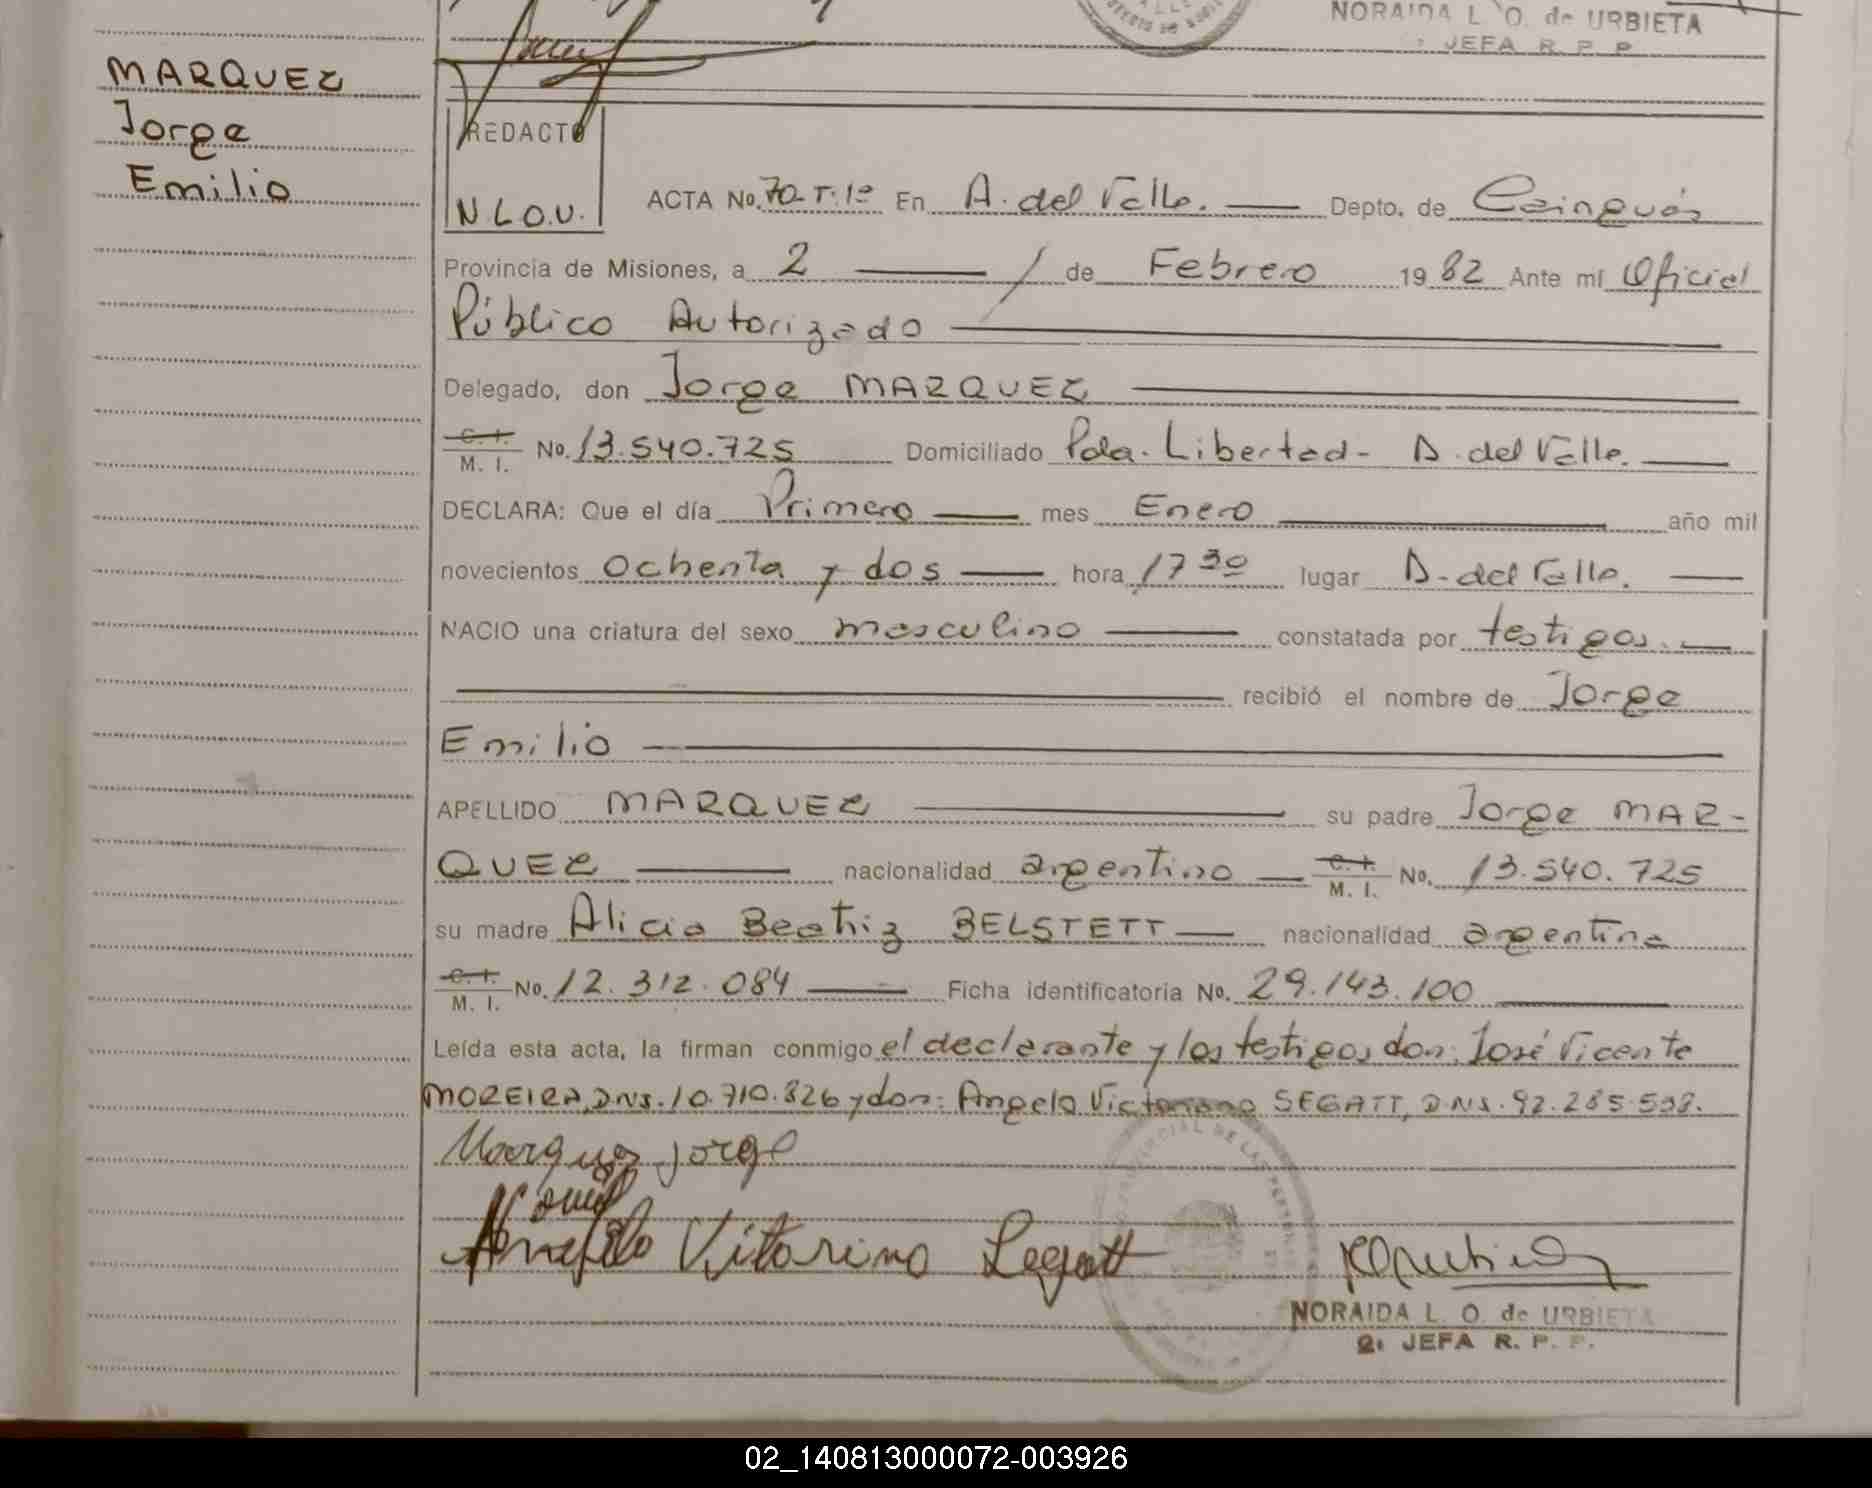 NORAIDA L. O. de URBIETA
JEFA R. P. P.
MARQUEZ
Jorge
Emilio
REDACTO
N.L.O.U.
ACTA No. 70-T.1º En A. del Valle. Depto. de Cainguás
Provincia de Misiones, a 2 de Febrero 1982 Ante mí Oficial
Público Autorizado
Delegado, don Jorge MARQUEZ
C. I.
M. I. No. 13.540.725 Domiciliado Pda. Libertad - A. del Valle.
DECLARA: Que el día Primero mes Enero año mil
novecientos Ochenta y dos hora 17 30 lugar A. del Valle.
NACIO una criatura del sexo masculino constatada por testigos.
recibió el nombre de Jorge
Emilio
APELLIDO MARQUEZ su padre Jorge MAR-
QUEZ nacionalidad argentino C. I.
M. I. No. 13.540.725
su madre Alicia Beatriz BELSTETT nacionalidad argentina
C. I.
M. I. No. 12.312.084 Ficha identificatoria No. 29.143.100
Leída esta acta, la firman conmigo el declarante y los testigos don: José Vicente
MOREIRA, DNI. 10.710.826 y don: Angelo Victorono SEGATT, DNI. 92.285.598.
Marquez Jorge
Vitorino Segatt
NORAIDA L. O. de URBIETA
2ª JEFA R. P. P.
02_140813000072-003926